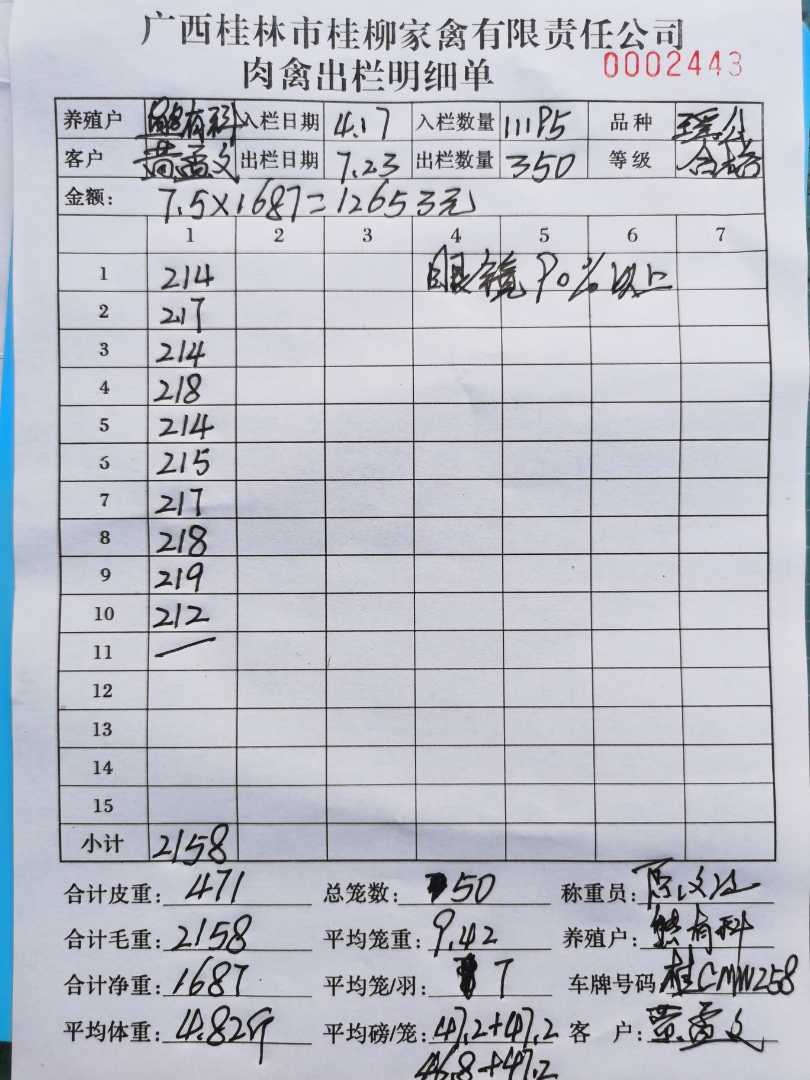 广西桂林市桂柳家禽有限责任公司
肉禽出栏明细单 0002443
养殖户 熊有科 入栏日期 4.17 入栏数量 11185 品种
客户 黄 文 出栏日期 7.23 出栏数量 350 等级 合格
金额: 7.5×1687=12653元
1 2 3 4 5 6 7
1 214 眼镜90%以上
2 217
3 214
4 218
5 214
6 215
7 217
8 218
9 219
10 212
11 —
12
13
14
15
小计 2158
合计皮重: 471 总笼数: 50 称重员: 文
合计毛重: 2158 平均笼重: 9.42 养殖户: 熊有科
合计净重: 1687 平均笼/羽: 7 车牌号码 桂CMW258
平均体重: 4.82斤 平均磅/笼: 47.2+47.2 客 户: 黄 文
46.8+47.2